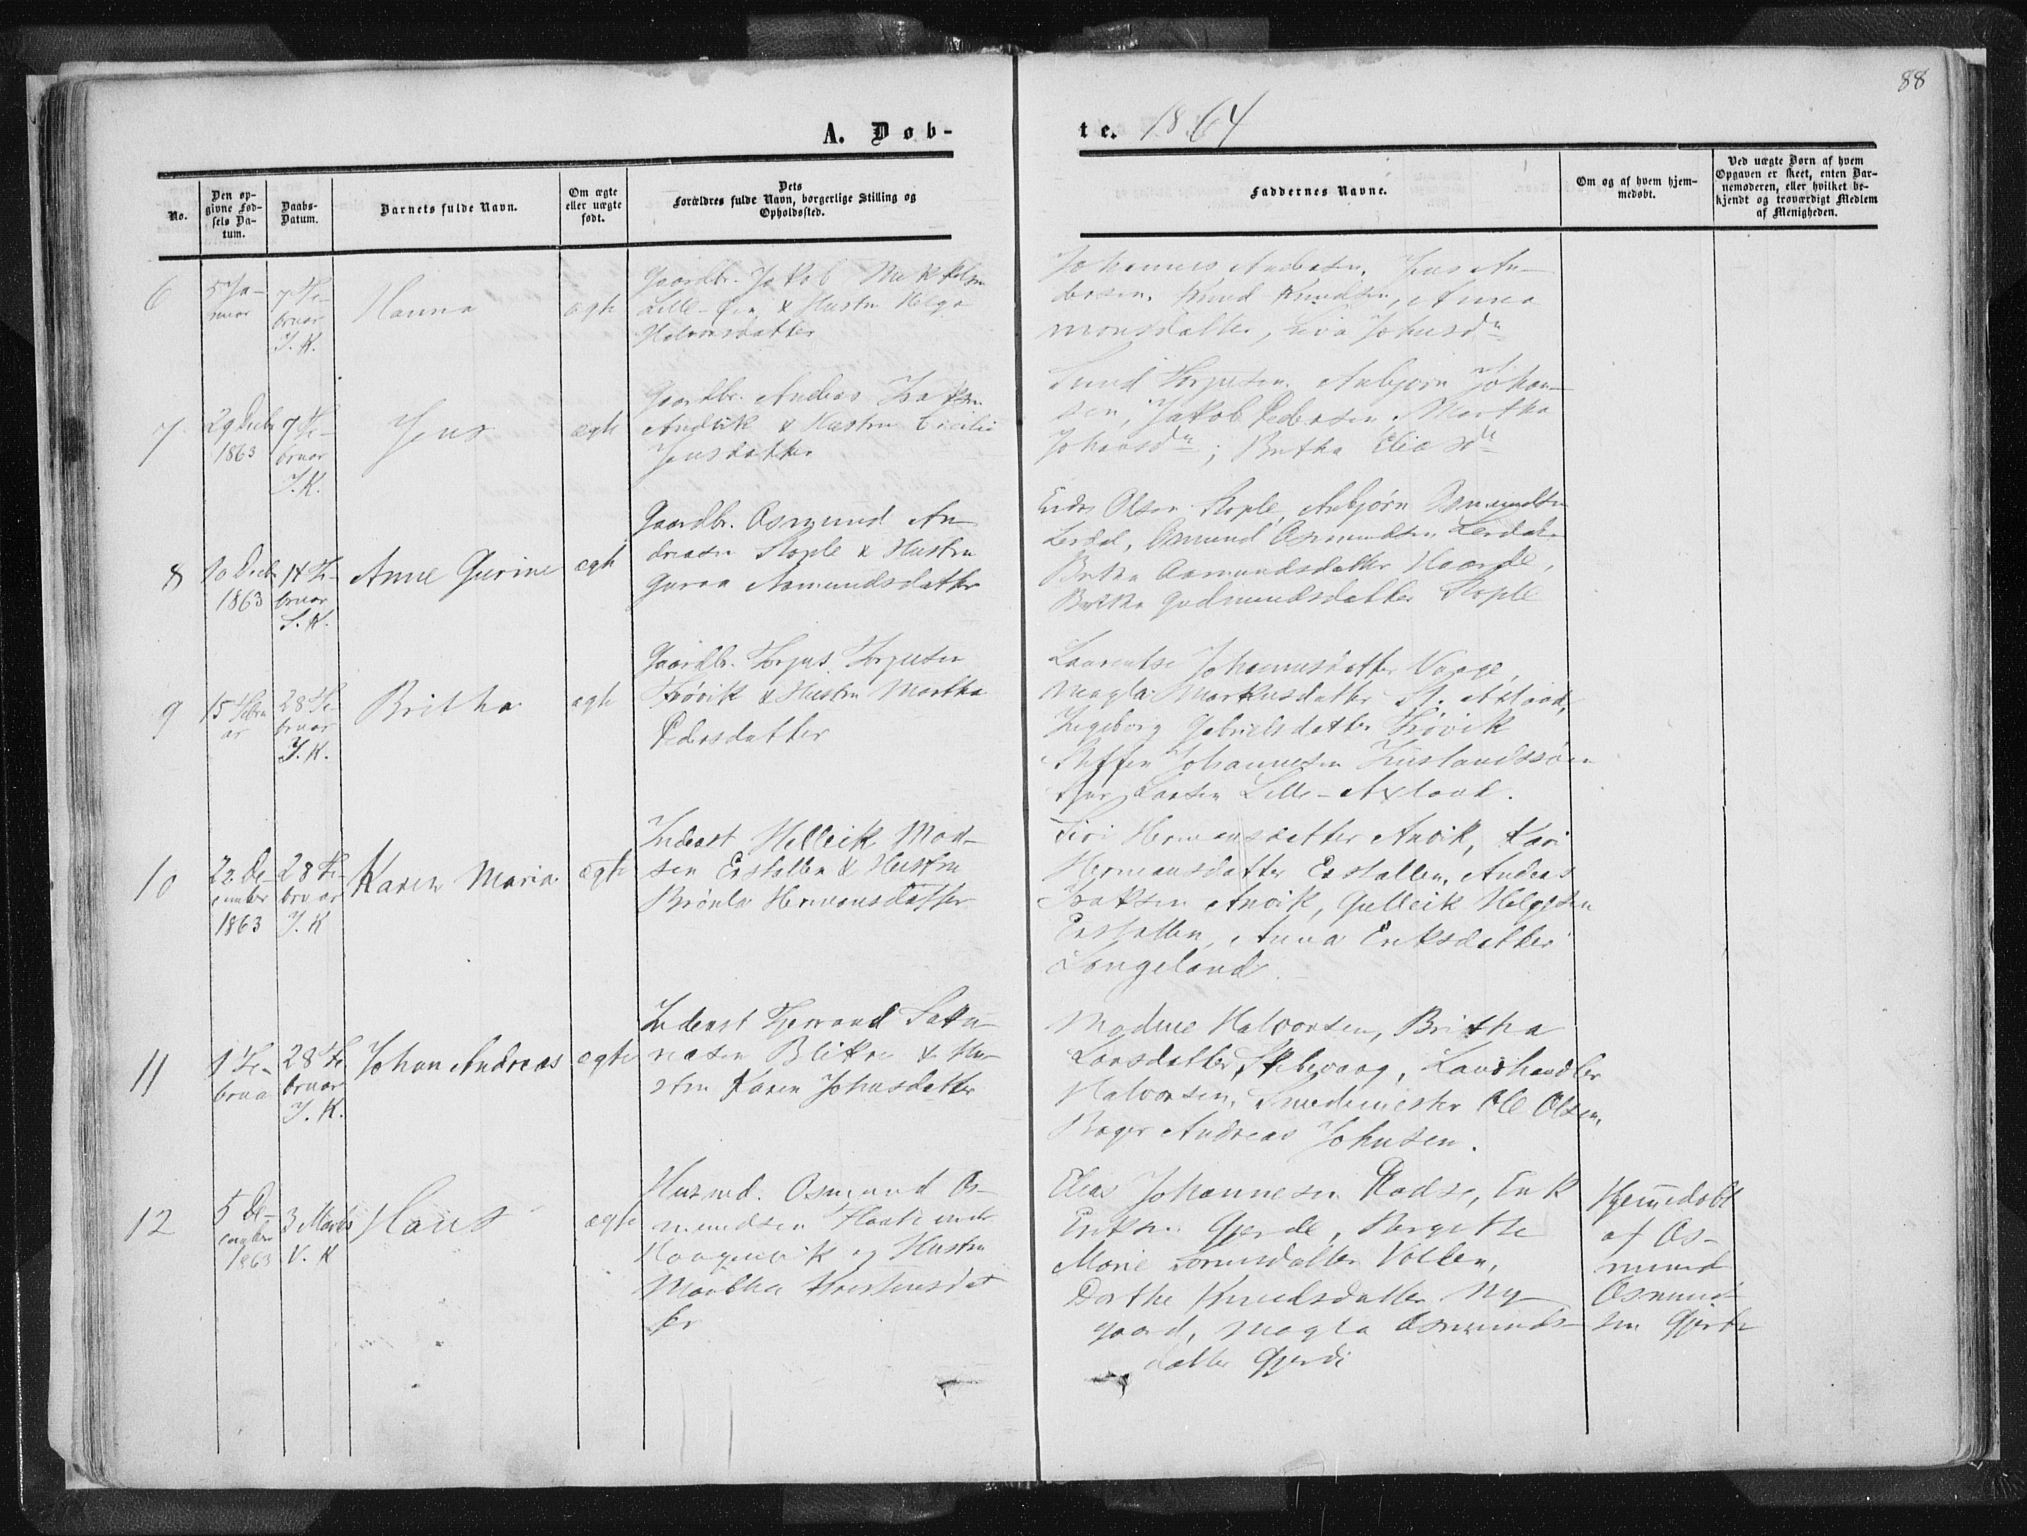 88
A. Døb-
te. 1864
No.
Den op-
givne Fød-
sels Da-
tum.
Daabs-
Datum.
Barnets fulde Navn.
Om ægte
eller uægte
født.
Dets
Forældres fulde Navn, borgerlige Stilling og
Opholdssted.
Faddernes Navne.
Om og af hvem hjem-
medøbt.
Ved uægte Børn af hvem
Opgaven er skeet, enten Bar-
nemoderen, eller hvilket be-
kjendt og troværdigt Medlem
af Menigheden.
6
5 Ja-
nuar
7 Fe-
bruar
J. K.
Hanna
ægte
Gaardbr. Jakob
Lille- & Hustru Helga
Halvorsdatter
Johannes Andersen,
dersen, Knud Knudsen, Anna
Monsdatter,
7
29 Decbr
1863
7 Fe-
bruar
J. K.
Jens
ægte
Gaardbr. Andreas Isaksen
& Hustru Cicilia
Jensdatter
Anbjørn Johan-
sen, Jakob Pedersen, Martha
Johansdtr; Britha Eliasdtr
8
10 Decbr
1863
14 Fe-
bruar
J. K.
Anne Gurine
ægte
Gaardbr. Osmund An-
dreasen Stople & Hustru
Gurina Asmundsdatter
Olsen Stople, Anbjørn Osmundsen
Lerdal, Osmund Osmundsen Lerdal
Britha Asmundsdatter
Britha Gudmundsdatter Stople
9
15 Febru
ar
28 Fe-
bruar
J. K.
Britha
ægte
Gaardbr. Torjus Torjusen
Frøvik & Hustru Martha
Pedersdatter
Laurentse Johannesdatter Vaage,
Magla Markusdatter St. Axland,
Ingeborg Gabrielsdatter Frøvik
Steffen Johannesen
Larsen Lille-Axland.
10
22 De-
cember
1863
28 Fe-
bruar
J. K
Karen Maria
ægte
Inderst Helleik Mad-
sen Erstallen & Hustru
Brønla Hermansdatter
Siri Hermansdatter Anvik, Kari
Hermansdatter Erstallen, Andreas
Isaksen Anvik, Gulleik Helgesen
Erstallen, Anna Eriksdatter
Langeland.
11
1 Fe-
brua
28 Fe
bruar
J. K.
Johan Andreas
ægte
Inderst Tjerrand Saka-
riasen Blikre & Hu-
stru Karen Johnsdatter
Madme Halvorsen, Britha
Larsdatter Skibevaag, Landhandler
Halvorsen, Smedemester Ole Olsen,
Bager Andreas Johnsen.
12
5 De-
cember
1863
3 Marts
V. K
Hans
ægte
Husmd. Osmund Os-
mundsen under
og Hustru
Martha Kristensdat
ter
Elias Johannesen Rødse, Erik
Eriksen Gjerde, Bergitte
Marie datter Vollen,
Dorthe Knudsdatter Ny-
gaard, Magla Osmunds-
datter Gjerde
Hjemmedøbt
af Os-
mund
Osmund-
sen Gjerde